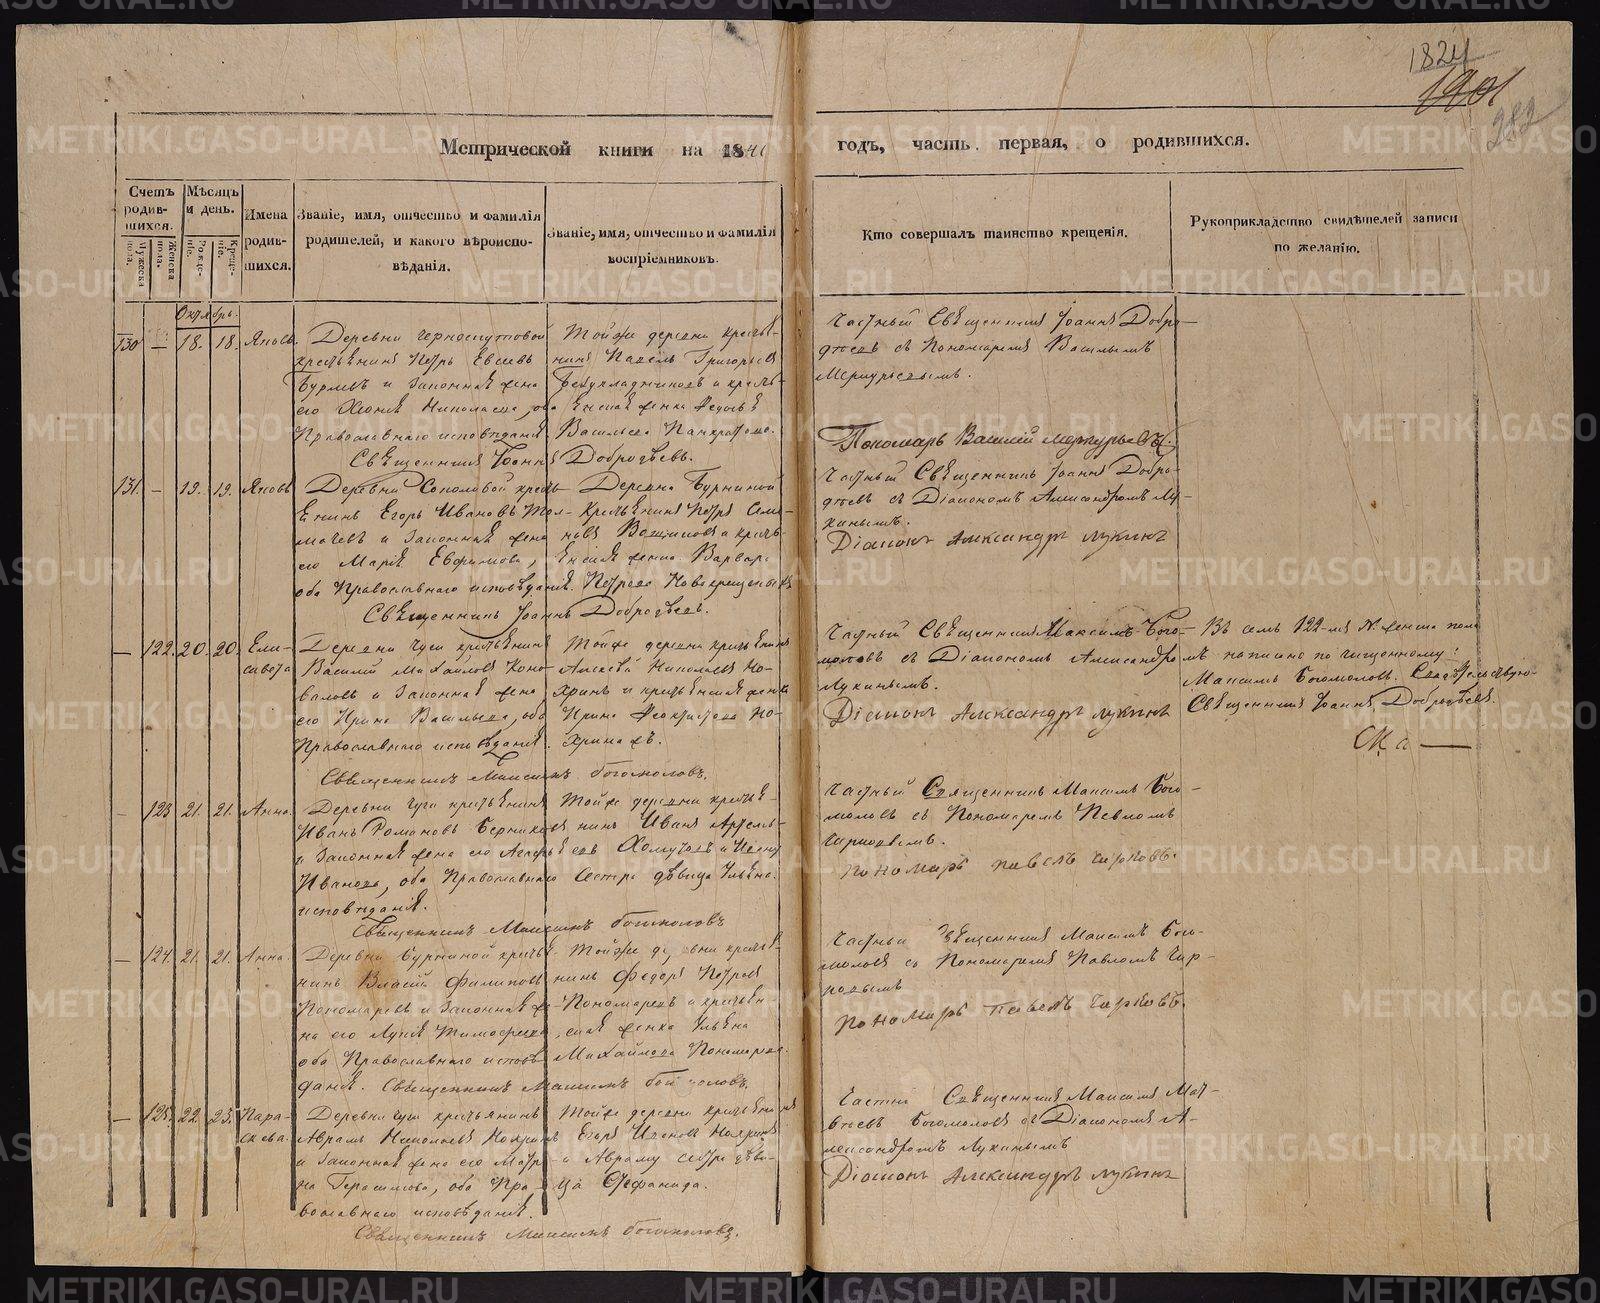 1824
1901
282
Метрической книги на 1841 годъ, часть первая, о родившихся.
Счетъ родив-шихся.
Мужеска пола.
Женска пола.
Мѣсяцъ и день.
Рожде-ніе.
Креще-ніе.
Имена родив-шихся.
Званіе, имя, отчество и фамилія
родителей, и какого вѣроиспо-
вѣданія.
Званіе, имя, отчество и фамилія
воспріемниковъ.
Кто совершалъ таинство крещенія.
Рукоприкладство свидѣтелей записи
по желанію.
Октябрь.
130 — 18. 18. Яковъ.
Деревни Черноскутовой
крестьянинъ Петръ Евсевъ
Бурлевъ и законная жена
его Хіонія Николаева, оба
Православнаго исповѣданія.
Священникъ Іоаннъ Добродѣевъ.
Той же деревни крестья-
нинъ Павелъ Григорьевъ
и кресть-
енская женка Федосья
Васильева Панкратова.
Частный Священникъ Іоаннъ Добро-
дѣевъ съ Пономаремъ Васильемъ
Меркурьевымъ.
Пономарь Василий Меркурьевъ.
131. — 19. 19. Яковъ
Деревни Соколовой кресть-
енинъ Егоръ Ивановъ Тол-
мачевъ и законная жена
его Марія Евфимова,
оба Православнаго исповѣданія.
Священникъ Іоаннъ Добродѣевъ.
Деревни Бурниной
крестьянинъ Петръ Семе-
новъ и кресть-
енская женка Варвара
Петрова Новокрещеныхъ
Частный Священникъ Іоаннъ Добро-
дѣевъ съ Діакономъ Александромъ Лу-
кинымъ.
Діаконъ Александръ Лукинъ
— 122. 20. 20. Ели-
савета
Деревни крестьянинъ
Василій Михайловъ Коно-
валовъ и законная жена
его Ирина Васильева, оба
Православнаго исповѣданія.
Священникъ Максимъ Богомоловъ.
Той же деревни крестьянинъ
Алексей Николаевъ Но-
хринъ и крестьянская женка
Ирина Феоктистова Но-
хрина.
Частный Священникъ Максимъ Бого-
моловъ съ Діакономъ Александромъ
Лукинымъ.
Діаконъ Александръ Лукинъ
Въ семъ 122-мъ №. женска пола
написано по чищенному:
Максимъ Богомоловъ. Свидетельствую
Священникъ Іоаннъ Добродѣевъ.
— 123. 21. 21. Анна.
Деревни крестьянинъ
Иванъ Романовъ
и законная жена его
Иванова, оба Православнаго
исповѣданія.
Священникъ Максимъ Богомоловъ
Той же деревни крестья-
нинъ Иванъ
сестра дѣвица Ульяна.
Частный Священникъ Максимъ Бого-
моловъ съ Пономаремъ Павломъ
Чирковымъ.
Пономарь Павелъ Чирковъ.
— 124. 21. 21. Анна.
Деревни Бурниной кресть-
нинъ Власій Филиповъ
Пономаревъ и законная же-
на его Тимофеева
оба Православнаго исповѣ-
данія. Священникъ Максимъ Богомоловъ.
Той же деревни крестья-
нинъ Федоръ Петровъ
Пономаревъ и крестьян-
ская женка Ульяна
Михайлова Пономарева.
Частный Священникъ Максимъ Бого-
моловъ съ Пономаремъ Павломъ Чир-
ковымъ
Пономарь Павелъ Чирковъ.
— 125. 22. 23. Пара-
скева.
Деревни крестьянинъ
Аврамъ Николаевъ Нохринъ
и законная жена его Матре-
на Герасимова, оба Пра-
вославнаго исповѣданія.
Священникъ Максимъ Богомоловъ.
Той же деревни крестьянинъ
Егоръ Ивановъ Нохринъ
и Авраму сестра дѣви-
ца Стефанида.
Частный Священникъ Максимъ Мат-
вѣевъ Богомоловъ съ Діакономъ А-
лександромъ Лукинымъ
Діаконъ Александръ Лукинъ
METRIKI.GASO-URAL.RU